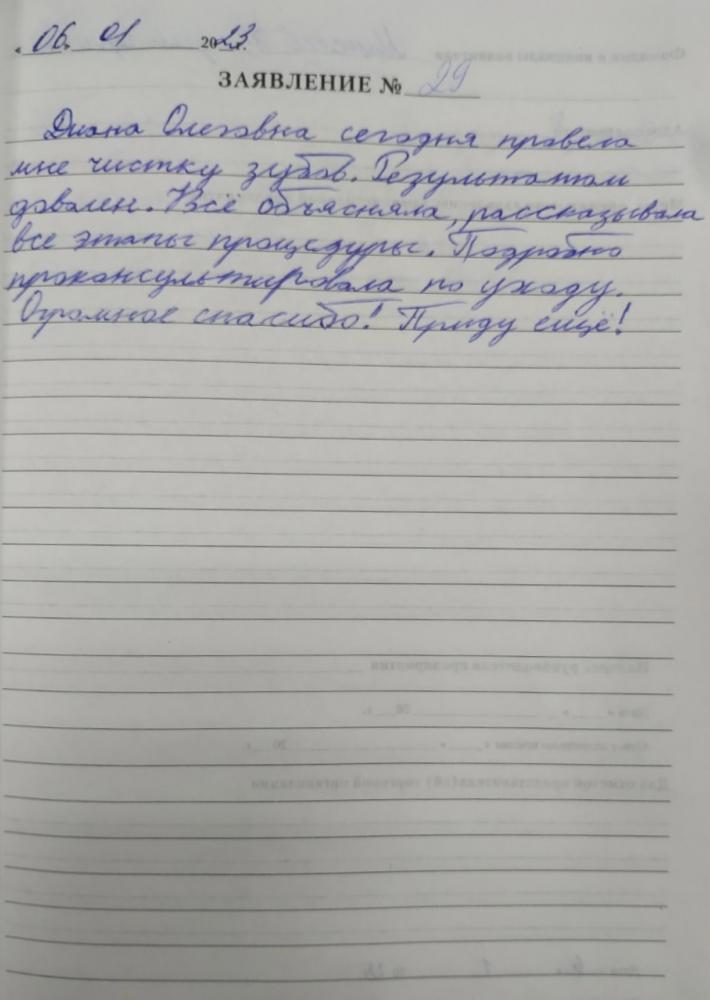 06. 01 2023г.
ЗАЯВЛЕНИЕ № 29
Диана Олеговна сегодня провела
мне чистку зубов. Результатом
доволен. Всё объясняла, рассказывала
все этапы процедуры. Подробно
проконсультировала по уходу.
Огромное спасибо! Приду ещё!